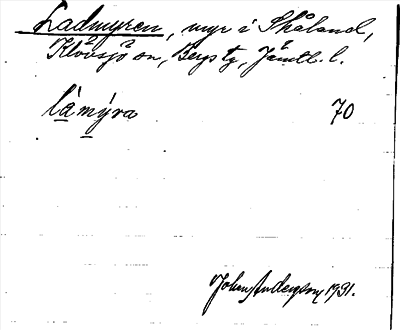 Ladmyren, myr i Skåland,
Klövsjö sn, Bergs tg, Jämtl. l.
làmýra 70
John Anderson, 1931.